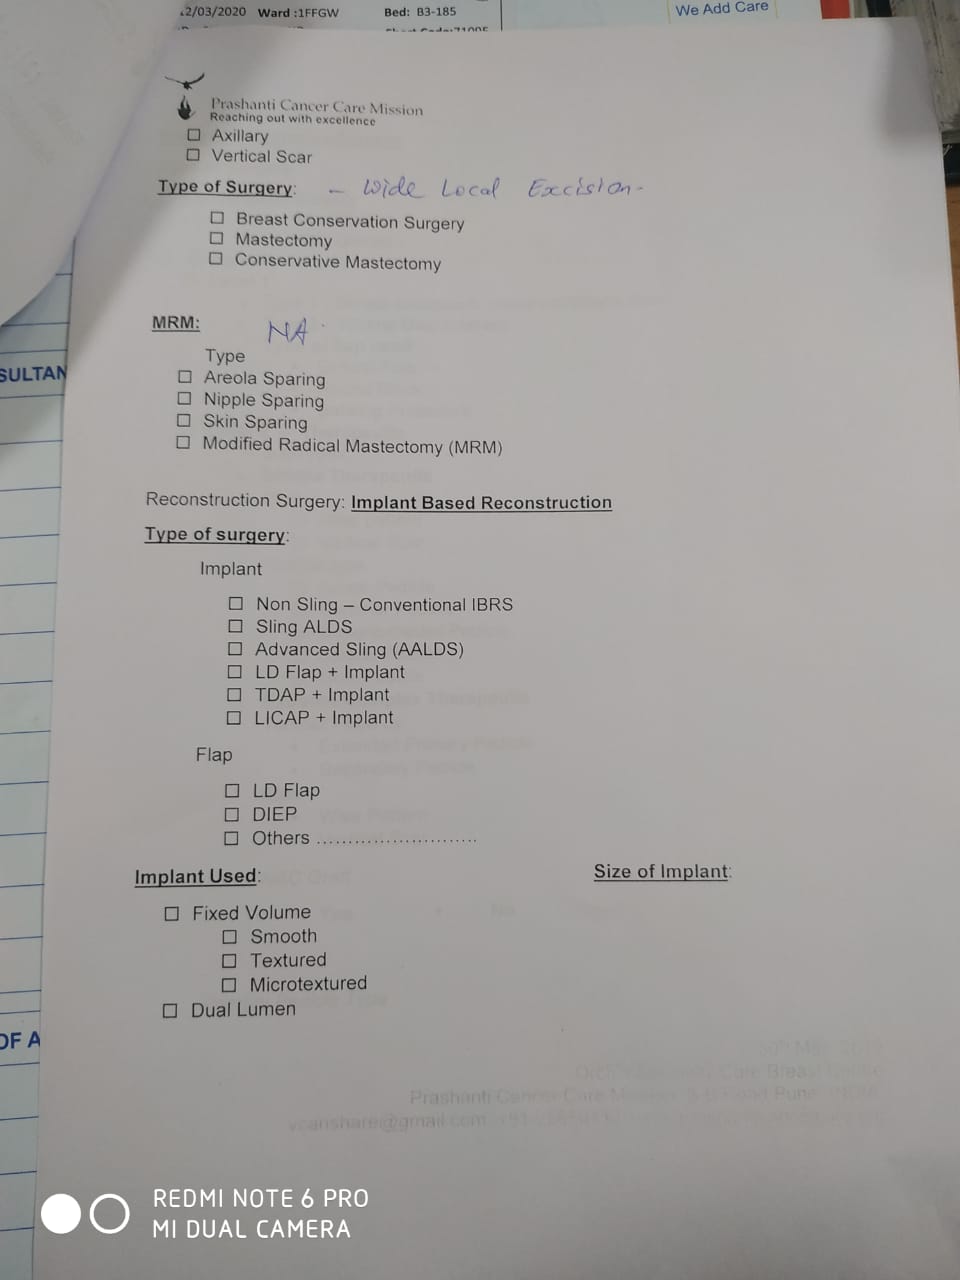 12/03/2020 Ward :1FFGW Bed: B3-185
We Add Care
Prashanti Cancer Care Mission
Reaching out with excellence
☐ Axillary
☐ Vertical Scar
Type of Surgery: - Wide Local Excision-
☐ Breast Conservation Surgery
☐ Mastectomy
☐ Conservative Mastectomy
MRM: NA
Type
SULTAN
☐ Areola Sparing
☐ Nipple Sparing
☐ Skin Sparing
☐ Modified Radical Mastectomy (MRM)
Reconstruction Surgery: Implant Based Reconstruction
Type of surgery:
Implant
☐ Non Sling – Conventional IBRS
☐ Sling ALDS
☐ Advanced Sling (AALDS)
☐ LD Flap + Implant
☐ TDAP + Implant
☐ LICAP + Implant
Flap
☐ LD Flap
☐ DIEP
☐ Others .........................
Implant Used: Size of Implant:
☐ Fixed Volume
☐ Smooth
☐ Textured
☐ Microtextured
☐ Dual Lumen
OF A
Prashanti Cancer Care Mission
vcanshare@gmail.com
REDMI NOTE 6 PRO
MI DUAL CAMERA